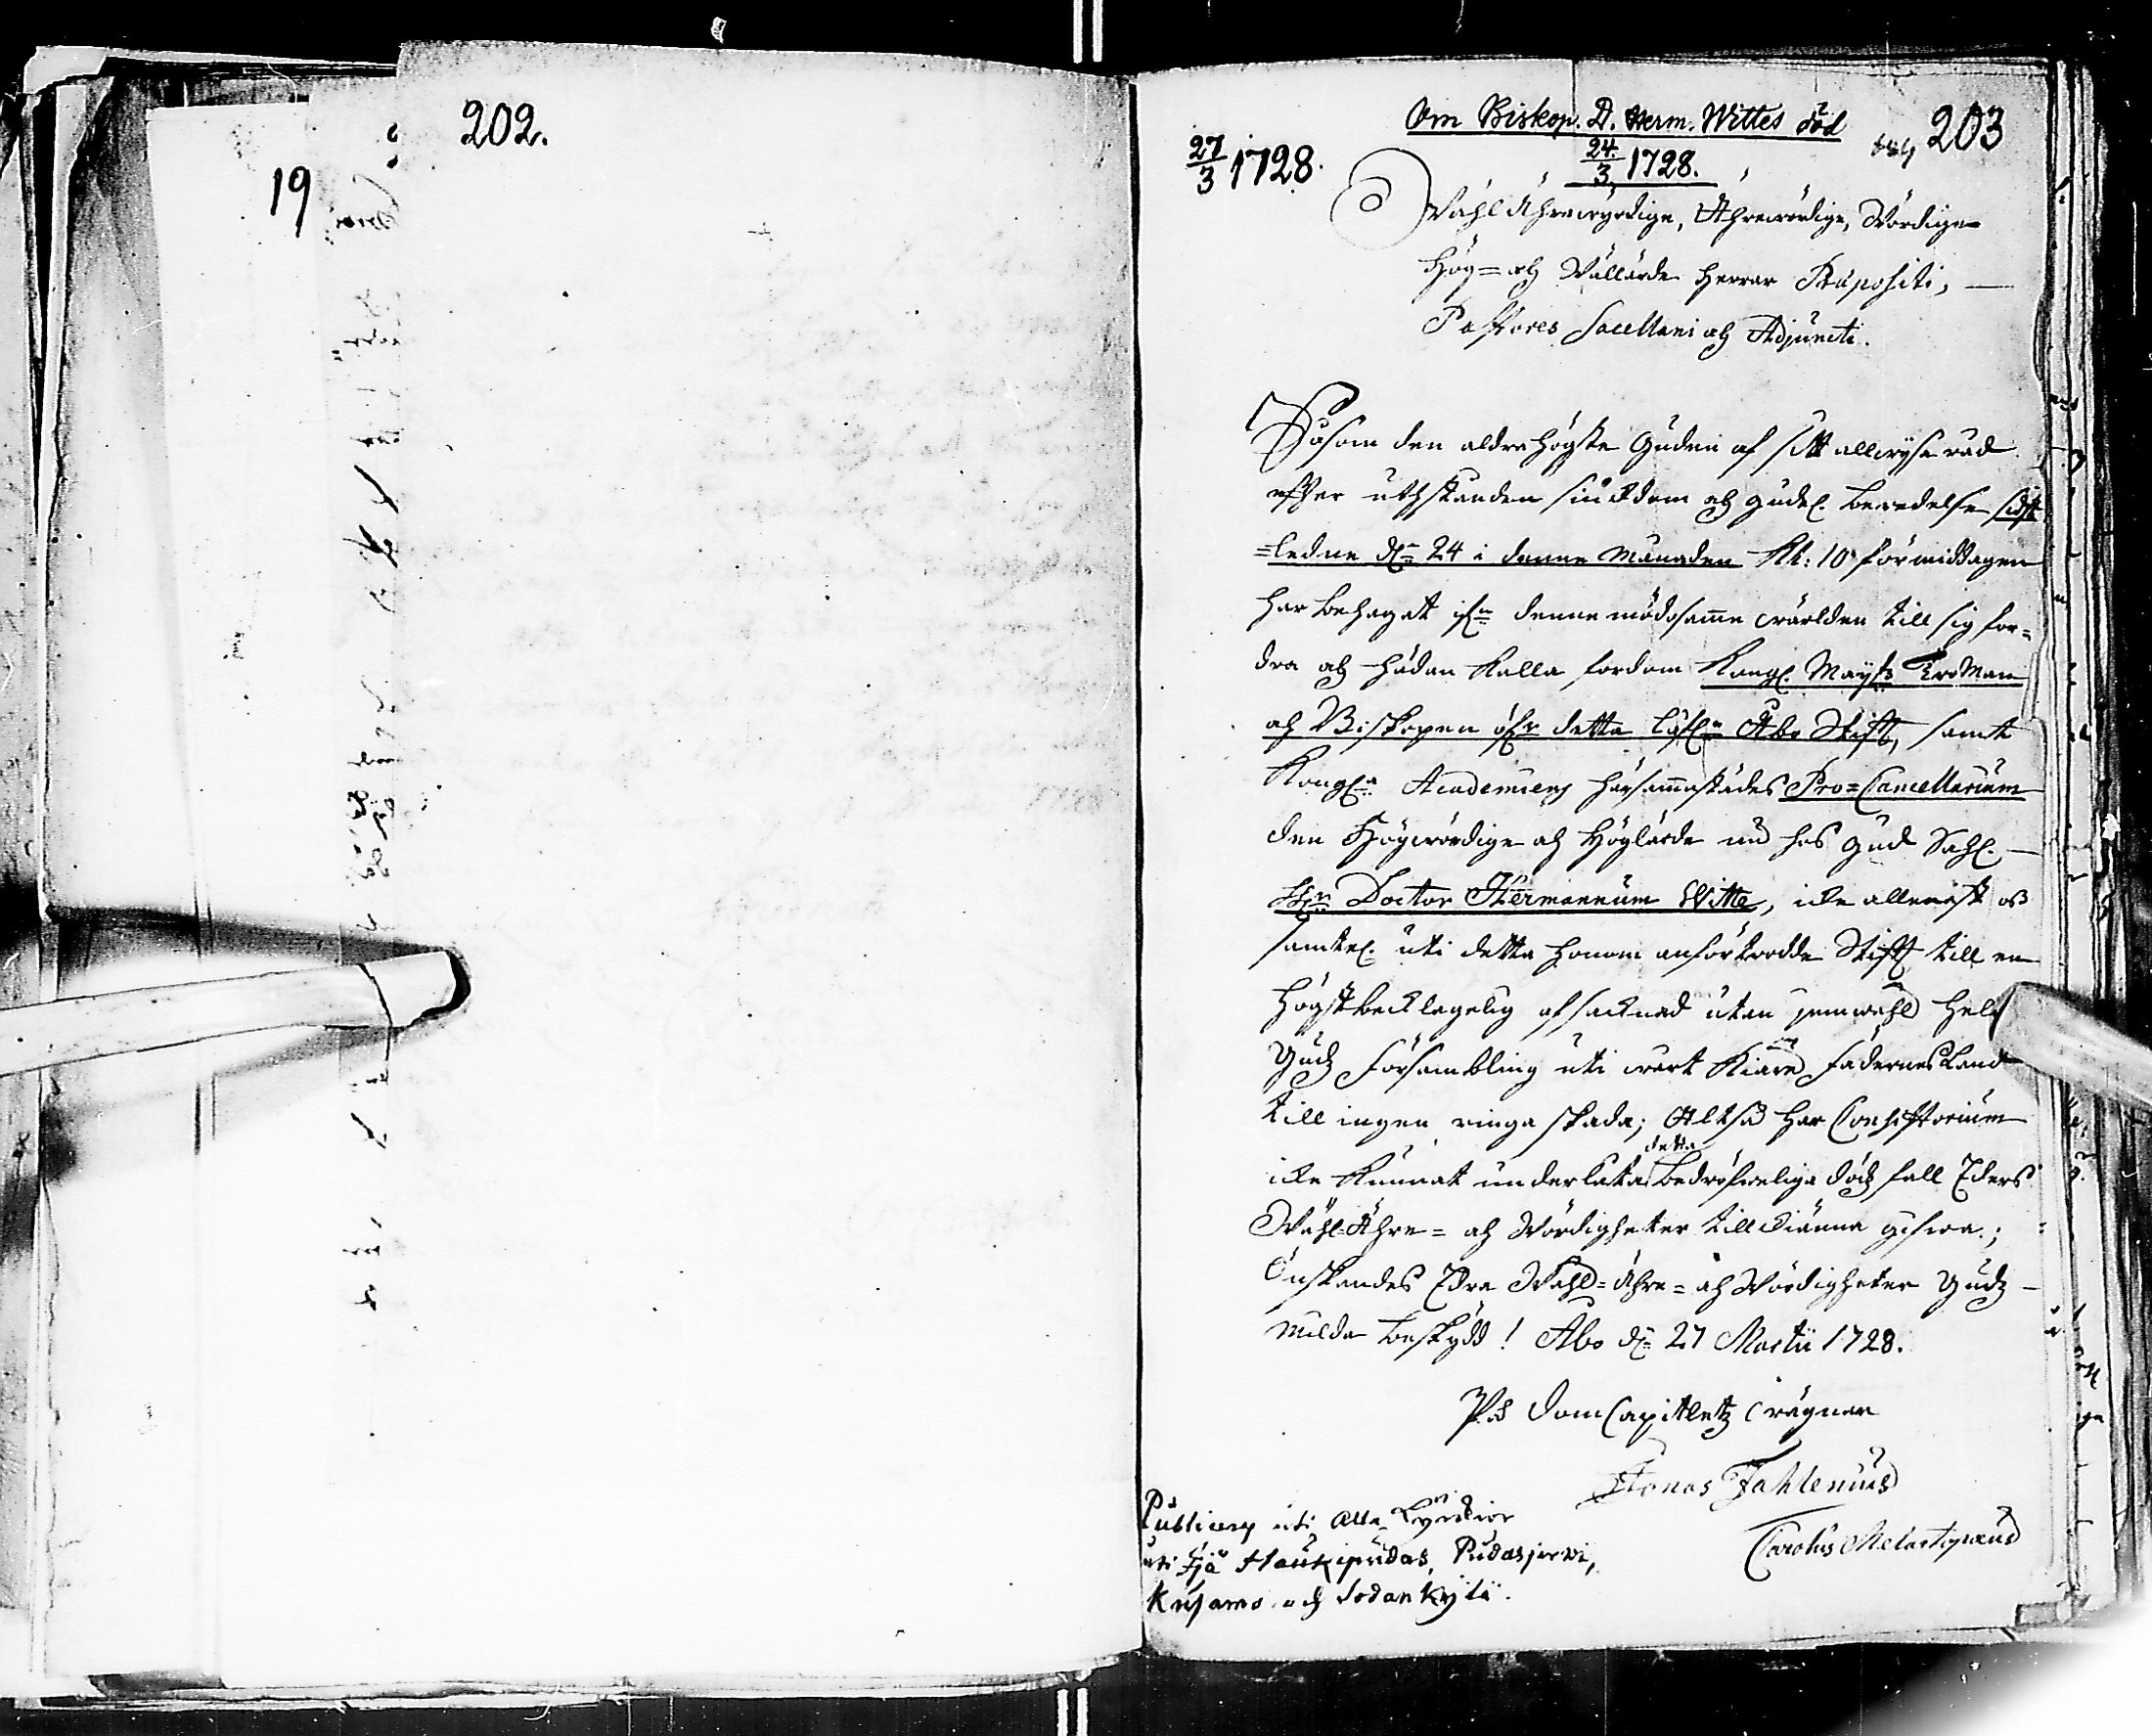 202.
19
Om Biskop. D. Herm. Wittes död
24/3 1728.
203
27/3 1728.
Wähl Ährewyrdige, Ährewördige, Wördige
Hög= och Wällärde Herrar Præpositi,
Pastores Sacellani och Adjuncti.
Såsom den aldrahögste Guden af sitt allwyse råd
effter uthstånden siukdom och gudel. beredelse sidst
=ledne dn 24 i denne Månaden Kl: 10 förmiddagen
har behagat ifrn denne mödosamme wärlden till sig for=
dra och hädan kalla fordom Kongl. Mayts Tro Man
och Biskopen öfr detta Åbo Stift, samt
Kongl. Academiens härsammastädes Pro=Cancellarium
den Högwördige och Höglärde nu hos Gud Sahl.
Hrn Doctor Hermannum Witte, icke allenast oss
samtel. uti detta honom anförtrodde Stifft till en
högstbeklagelig afsaknad utan jemwähl hela
Gudz Försambling uti wart kiära FädernesLand
till ingen ringa skada; Altså har Consistorium
icke kunnat underlåta detta bedröfwelige dödz fall Eders
Wähl-Ähre= och Wördigheter tillkiänna gifwa;
Önskandes Edra Wähl=Ähre= och Wördigheter Gudz
milda beskydd! Åbo dn 27 Martii 1728.
På DomCapitletz wägnar
Jonas Fahlenius
Carolus Melartopæus
Publicerz uti alla Kyrckior
uti Ijå Haukipudas, Pudasjerwi,
Kusamo och Sodankylä.